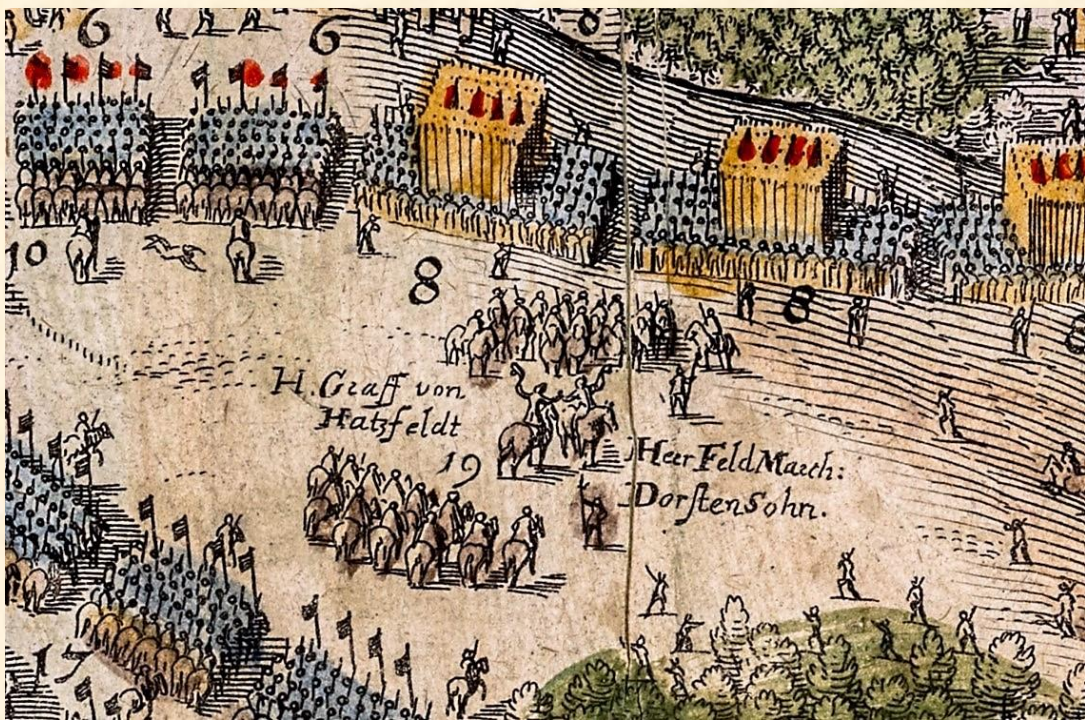 6 6 8
10
8
8
H. Graff von
Hatzfeldt
19
Herr Feld March:
Dorstensohn.